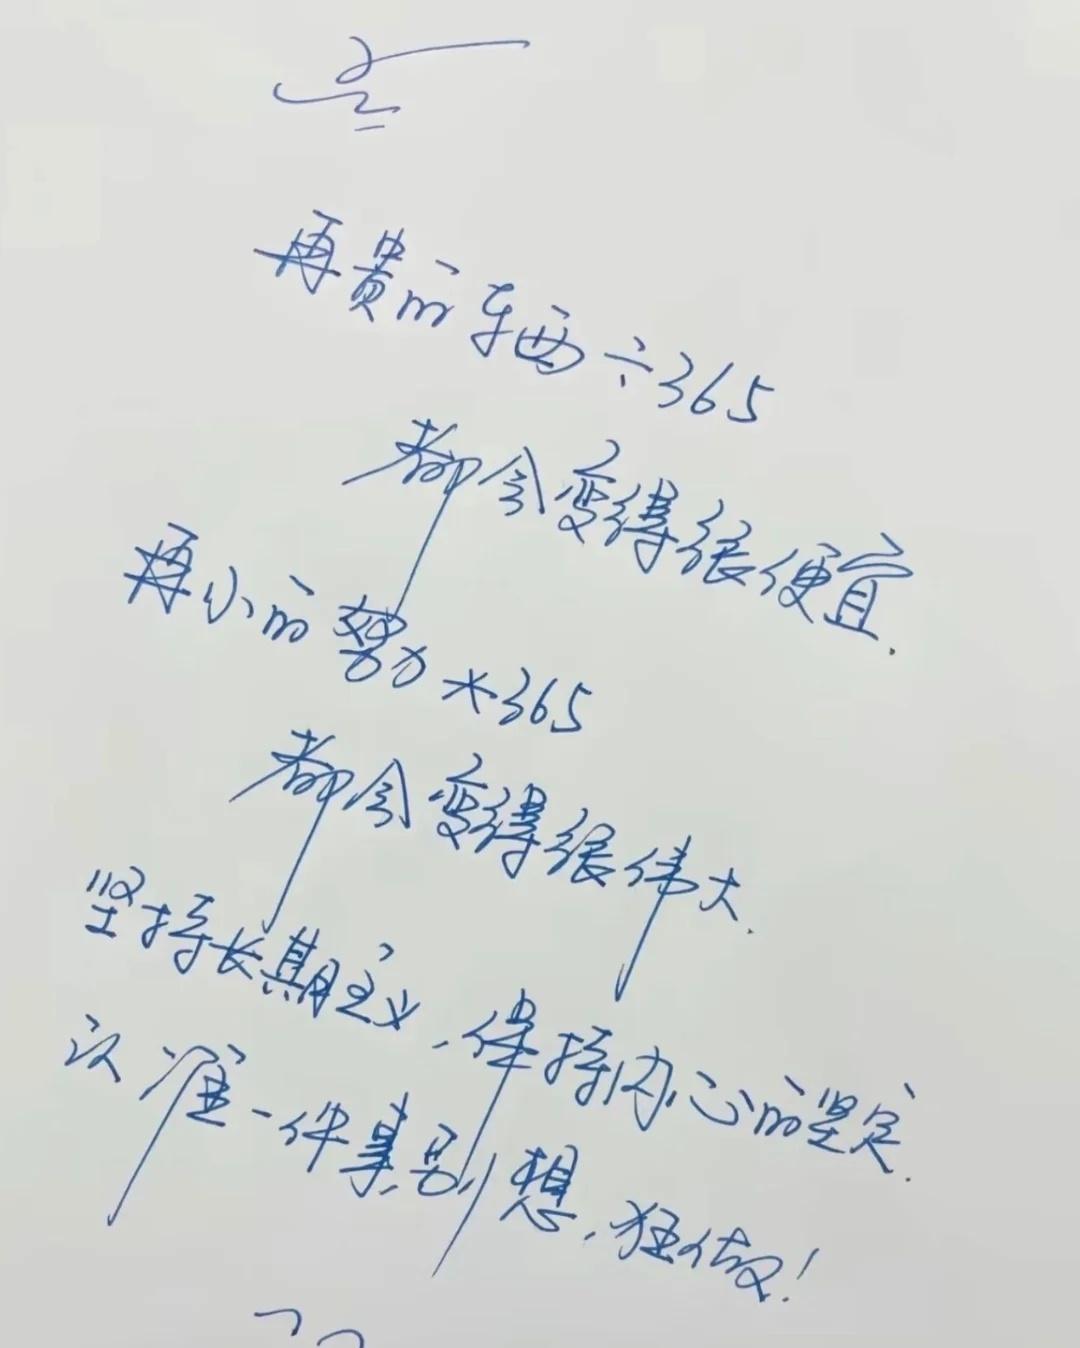 再貴的东西÷365
都会变得很便宜.
再小的努力*365
都会变得很伟大.
坚持长期主义,保持内心的坚定.
认准一件事,别想,狂做!